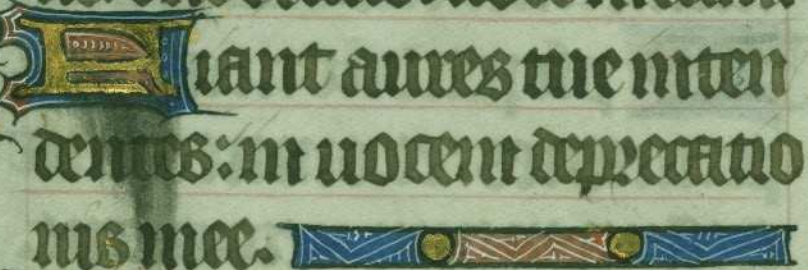 Fiant aures tue inten
dentes: in uocem deprecatio
nis mee.